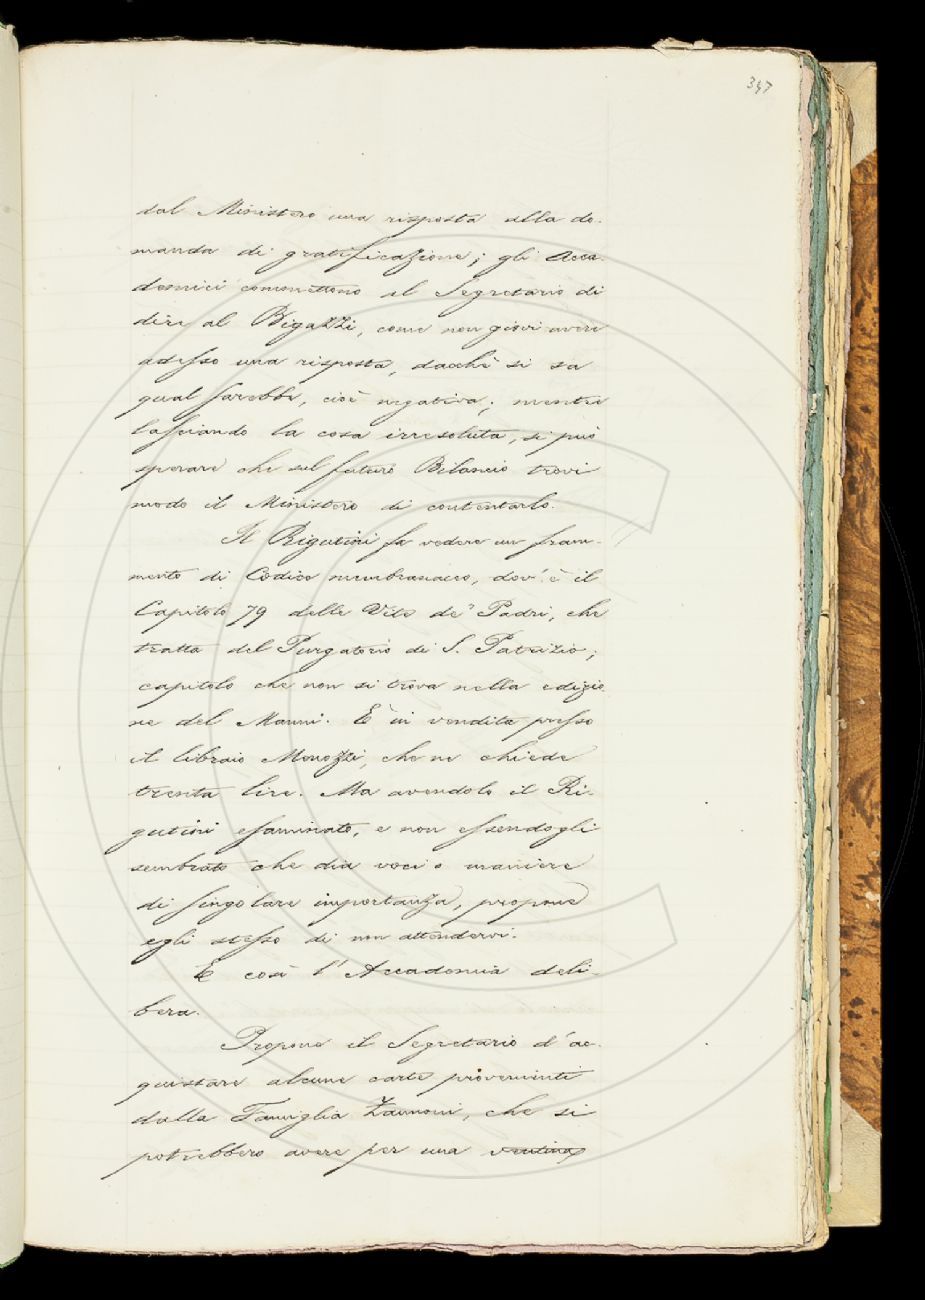 347
dal Ministero una risposta alla do-
manda di gratificazione; gli Acca-
demici commettono al Segretario di
dire al Bigazzi, come non giovi avere
adesso una risposta, dacchè si sa
qual sarebbe, cioè negativa; mentre
lasciando la cosa irresoluta, si può
sperare che sul futuro Bilancio trovi
modo il Ministero di contentarlo.
Il Rigutini fa vedere un fram-
mento di Codice membranaceo, dov'è il
Capitolo 79 delle Vite de' Padri, che
tratta del Purgatorio di S. Patrizio;
capitolo che non si trova nella edizio
ne del Manni. È in vendita presso
il libraio Menozzi, che ne chiede
trenta lire. Ma avendolo il Ri-
gutini esaminato, e non essendogli
sembrato che dia voci o maniere
di singolare importanza, propone
egli stesso di non attendervi.
E così l'Accademia deli-
bera.
Propone il Segretario d'ac-
quistare alcune carte provenienti
dalla Famiglia Zannoni, che si
potrebbero avere per una ventina